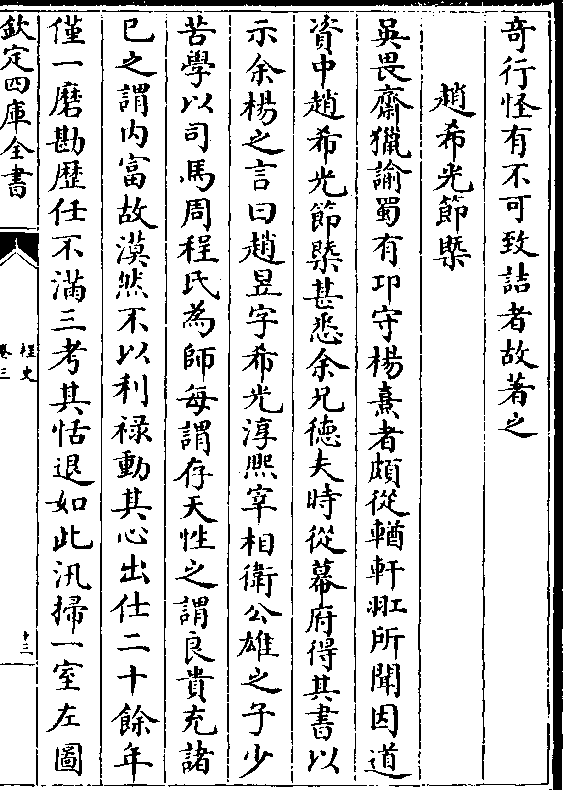 奇行怪有不可致詰者故著之
趙希光節槩
吳畏齋獵諭蜀有邛守楊熹者頗從輶軒𦐇所聞因道
資中趙希光節槩甚悉余兄德夫時從幕府得其書以
示余楊之言曰趙昱字希光淳熙宰相衛公雄之子少
苦學以司馬周程氏為師每謂存天性之謂良貴充諸
已之謂内富故漠然不以利禄動其心出仕二十餘年
僅一磨勘歴任不滿三考其恬退如此汛掃一室左圖
欽定四庫全書
桯史
卷三
十三